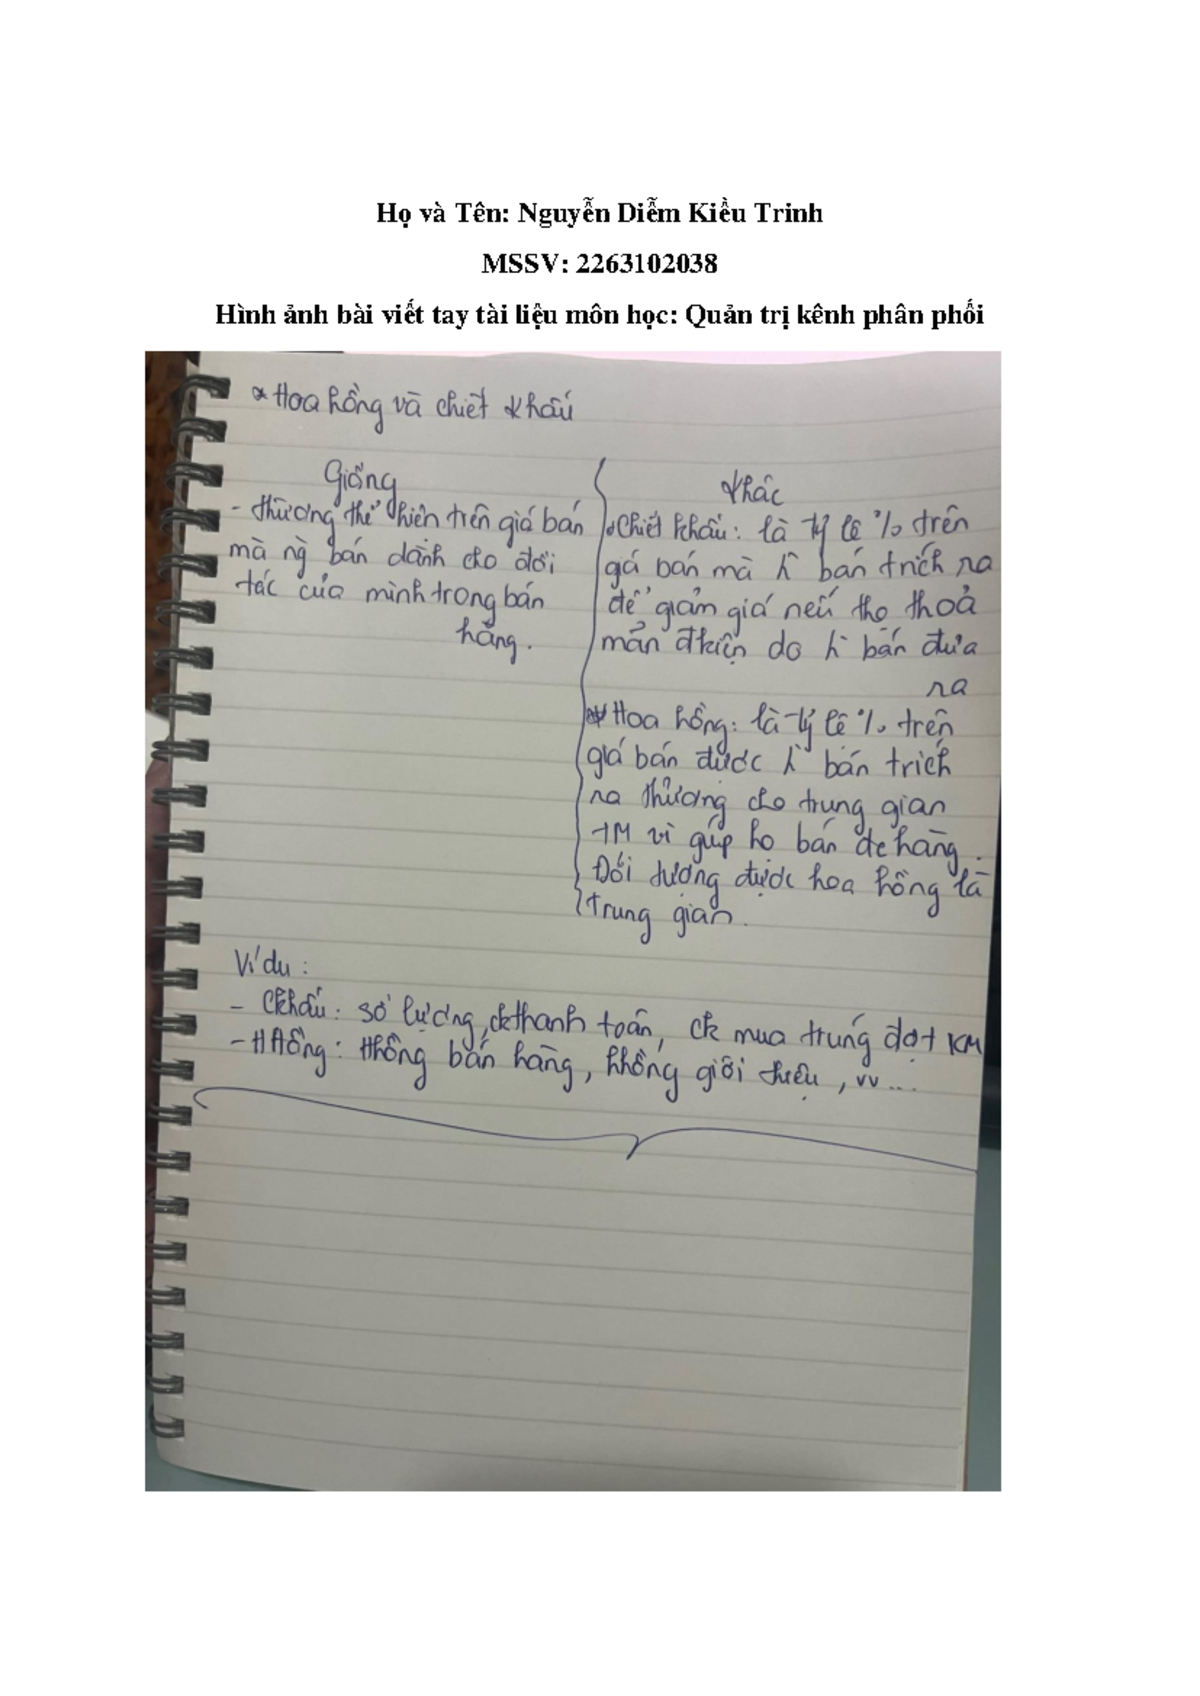 Họ và Tên: Nguyễn Diễm Kiều Trinh
MSSV: 2263102038
Hình ảnh bài viết tay tài liệu môn học: Quản trị kênh phân phối
* Hoa hồng và chiết khấu
Giống
- thường thể hiện trên giá bán
mà ng` bán dành cho đối
tác của mình trong bán
hàng.
Khác
• Chiết khấu: là tỷ lệ % trên
giá bán mà bán trích ra
để giảm giá nếu thoả
mãn đkiện do bán đưa
ra
* Hoa hồng: là tỷ lệ % trên
giá bán được bán trích
ra thưởng cho trung gian
TM vì giúp họ bán đc hàng.
Đối tượng được hoa hồng là
trung gian.
Ví dụ:
- Ckhấu: số lượng, ck thanh toán, ck mua trúng đợt KM
- HHồng: Hhồng bán hàng, hhồng giới thiệu, vv...